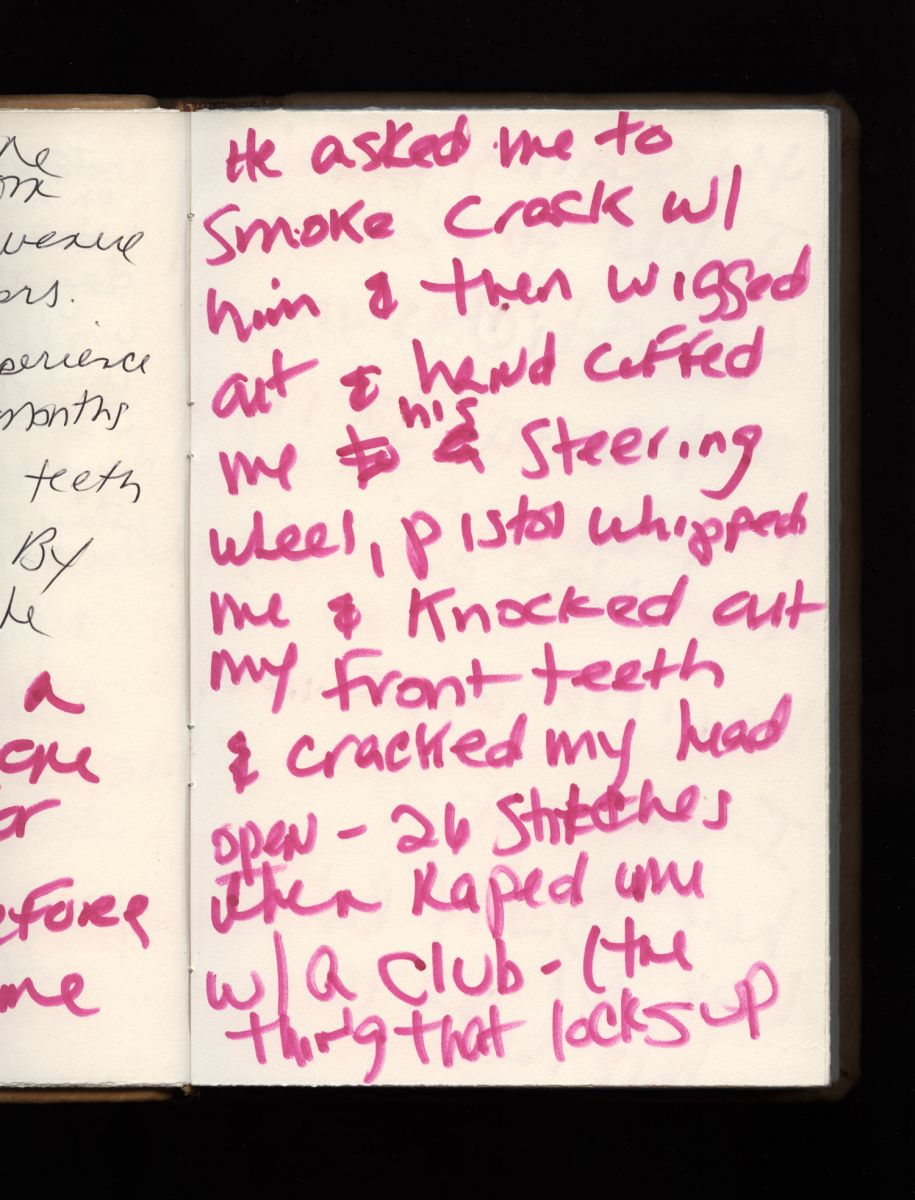 venue
ors.
perience
months
teeth
By
a
or
efore
me
He asked me to
Smoke Crack w/
him & then wigged
out & hand cuffed
me to his Steering
wheel, pistol whipped
me & Knocked out
my front teeth
& cracked my head
open - 26 Stitches
then Raped me
w/ a Club - (the
thing that locks up